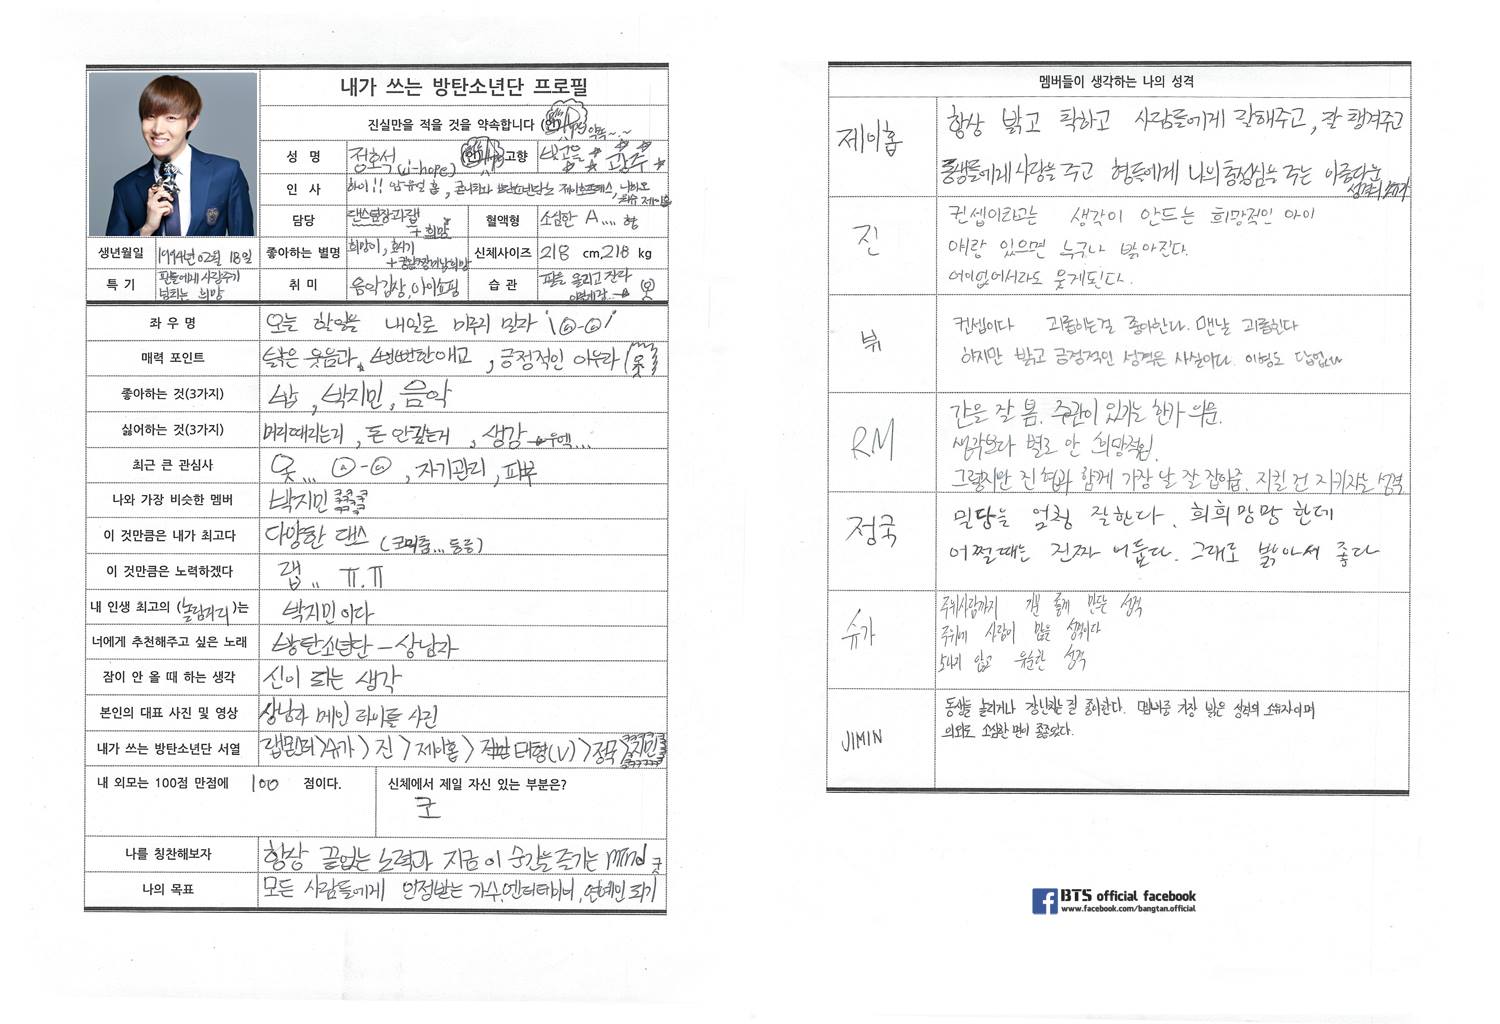 내가 쓰는 방탄소년단 프로필
진실만을 적을 것을 약속합니다 (인)
성 명 정호석 (J-hope) 고향 빛고을 광주
인 사 하이!!
담당 댄스담당과 랩 + 희망 혈액형 소심한 A.... 형
생년월일 1994년 02월 18일 좋아하는 별명 희망이, 호시기 신체사이즈 218 cm, 218 kg
특 기 팬들에게 사랑주기 넘치는 희망 취 미 음악감상, 아이쇼핑 습 관 팔을 올리고 잔다
좌 우 명 오늘 할일을 내일로 미루지 말자
매력 포인트 밝은 웃음과, 뻔뻔한 애교, 긍정적인 아우라
좋아하는 것(3가지) 밥, 박지민, 음악
싫어하는 것(3가지) 머리때리는거, 돈 안갚는거, 생강 우엑...
최근 큰 관심사 옷... , 자기관리, 피부
나와 가장 비슷한 멤버 박지민 ㅋㅋㅋㅋ
이 것만큼은 내가 최고다 다양한 댄스 (코믹춤... 등등)
이 것만큼은 노력하겠다 랩.. ㅠ.ㅠ
내 인생 최고의 (놀림거리)는 박지민 이다
너에게 추천해주고 싶은 노래 방탄소년단 - 상남자
잠이 안 올 때 하는 생각 신이 되는 생각
본인의 대표 사진 및 영상 상남자 메인 타이틀 사진
내가 쓰는 방탄소년단 서열 랩몬터 > 슈가 > 진 > 제이홉 > 태형(V) > 정국 > 지민
내 외모는 100점 만점에 100 점이다. 신체에서 제일 자신 있는 부분은?
코
나를 칭찬해보자 항상 끝없는 노력과 지금 이 순간을 즐기는 mind 굿
나의 목표 모든 사람들에게 인정받는 가수, 엔터테이너, 연예인 되기
멤버들이 생각하는 나의 성격
제이홉 항상 밝고 착하고 사람들에게 잘해주고, 잘 챙겨주고
동생들에게 사랑을 주고 형들에게 나의 충성심을 주는 아름다운
성격의 소유자
진 컨셉이라고는 생각이 안드는 희망적인 아이
얘랑 있으면 누구나 밝아진다.
어이없어서라도 웃게된다.
뷔 컨셉이다 괴롭히는걸 좋아한다. 맨날 괴롭힌다
하지만 밝고 긍정적인 성격은 사실이다. 이형도 답없다
RM 간을 잘 봄. 주관이 있기는 한가 의문.
생각보다 별로 안 희망적임.
그렇지만 진 형과 함께 가장 날 잘 잡아줌. 지킬 건 지키자는 성격
정국 밀당을 엄청 잘한다. 희희망망 한데
어쩔때는 진짜 어둡다. 그래도 밝아서 좋다
슈가 주위사람까지 기분 좋게 만드는 성격
주위에 사람이 많을 성격이다
모나지 않고 유순한 성격
JIMIN 동생들 놀리거나 장난치는 걸 좋아한다. 멤버중 가장 밝은 성격의 소유자이며
의외로 소심한 면이 좀있다.
BTS official facebook
www.facebook.com/bangtan.official